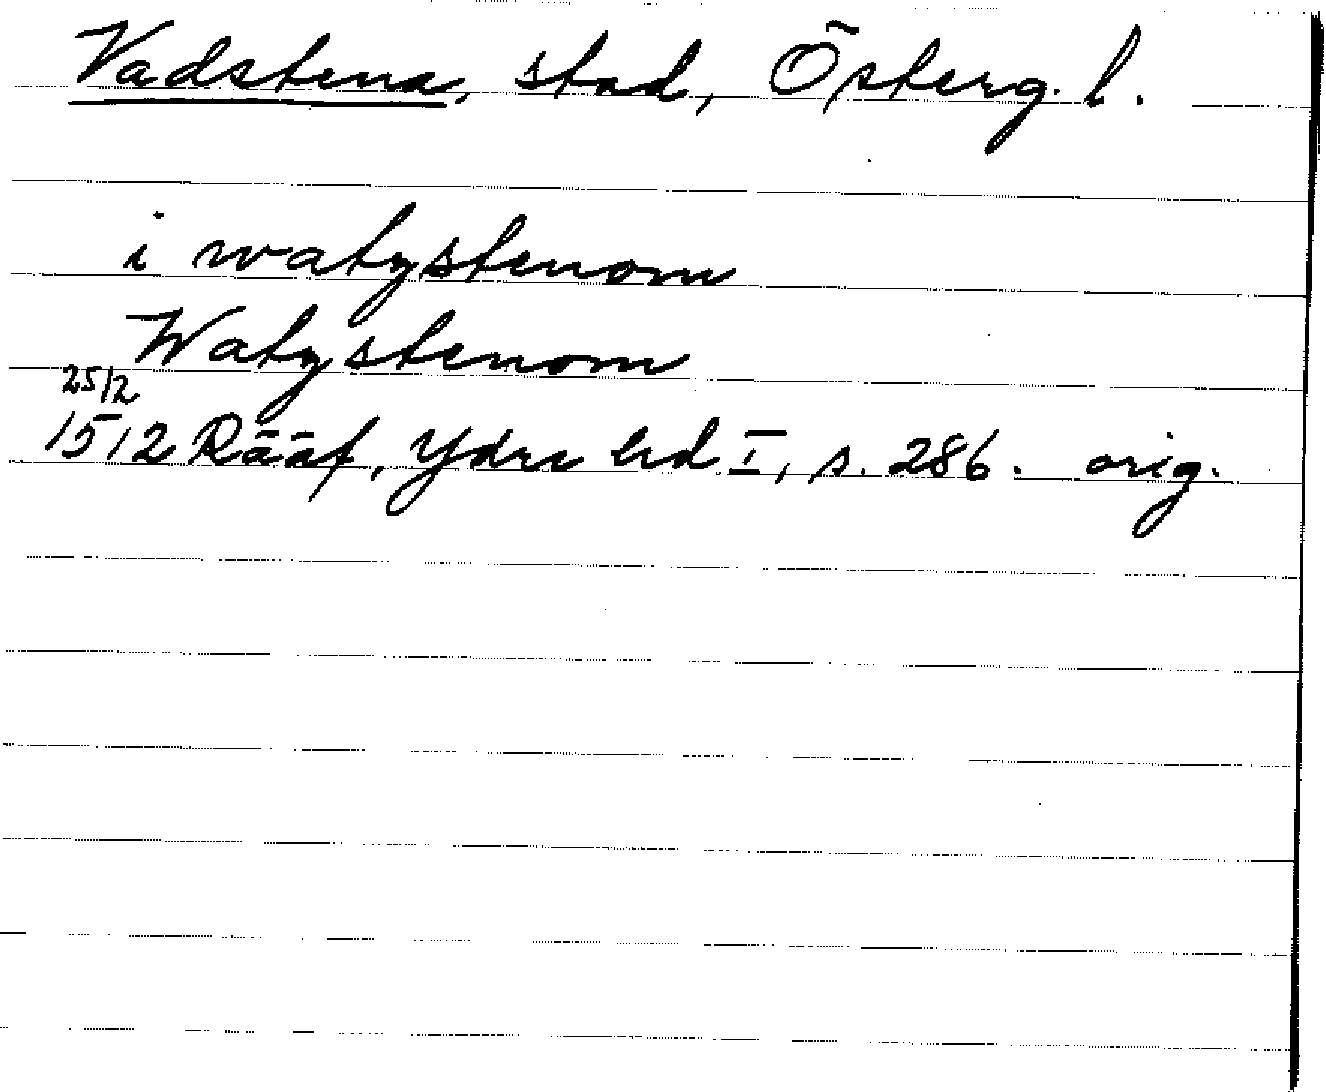 Vadstena, stad, Österg. l.
i watzstenom
Watzstenom
25/2
1512 Rääf, Ydre hd I, s. 286. orig.